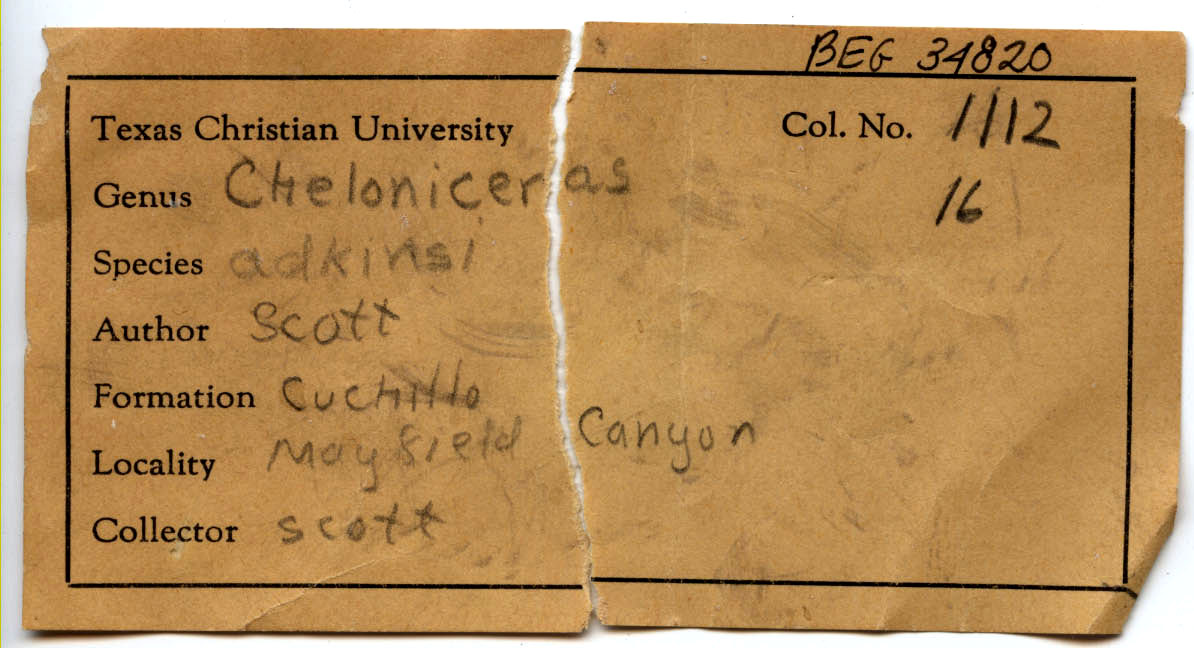 BEG 34820
Texas Christian University Col. No. 1112
16
Genus Cheloniceras
Species adkinsi
Author Scott
Formation Cuchillo
Locality Mayfield Canyon
Collector scott